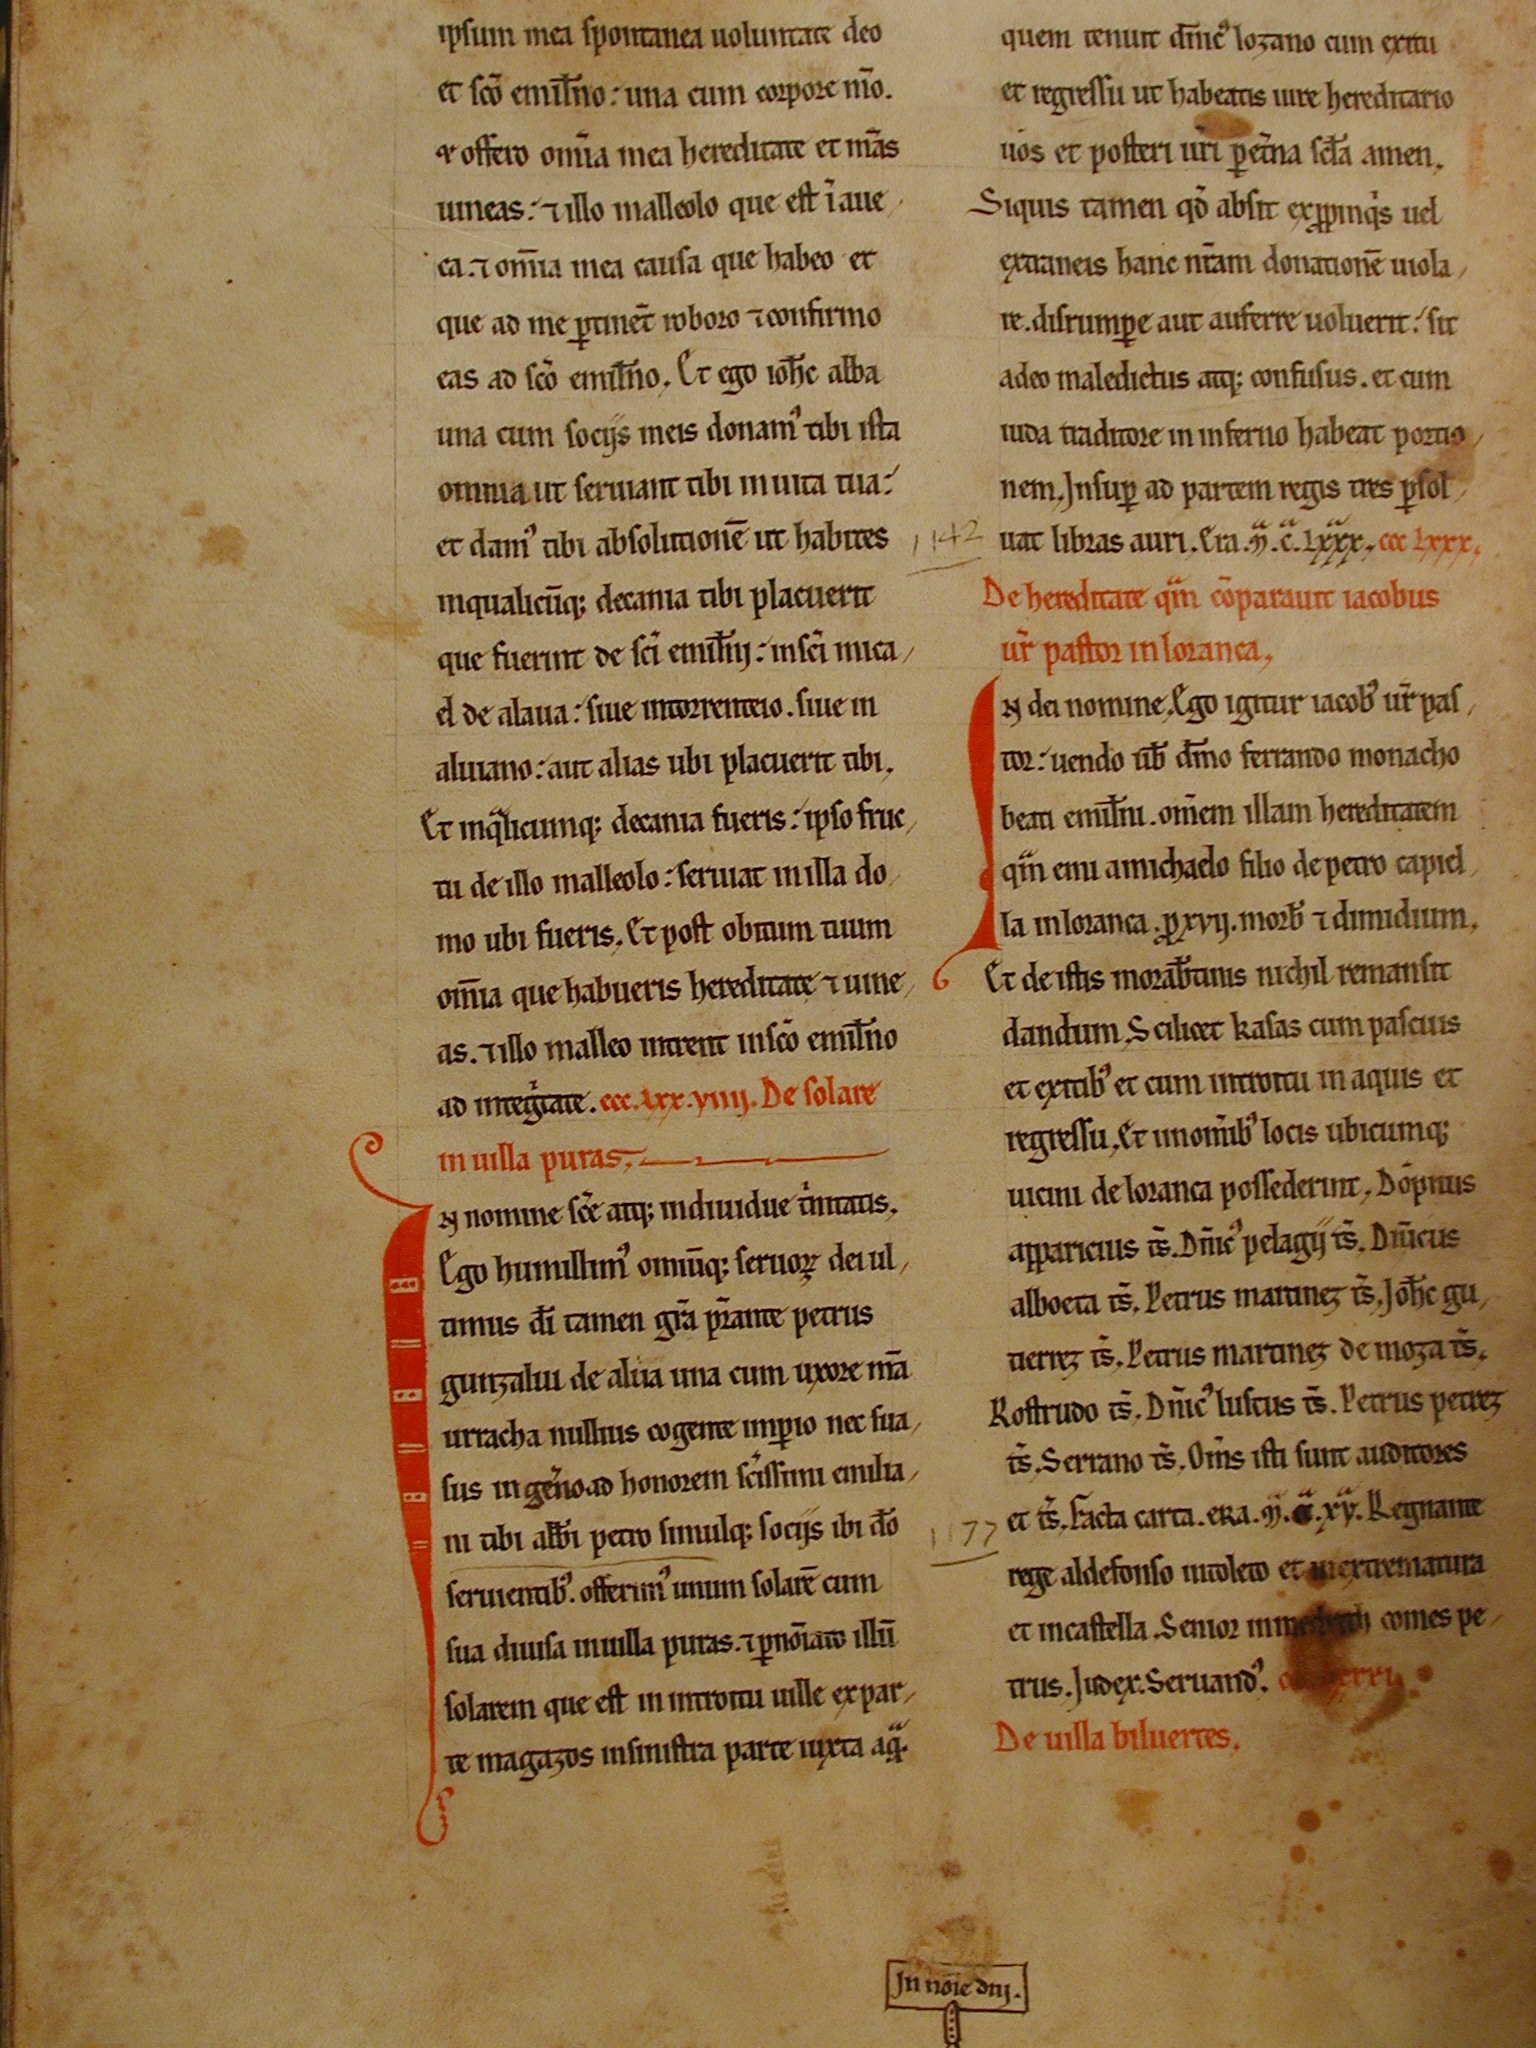 ipsum mea spontanea uoluntate deo
et sc̃o emil̃no : una cum corpore m̃o.
⁊ offero om̃ia mea hereditate et m̃as
uineas : ⁊ illo malleolo que est ĩ aue
ca. ⁊ om̃ia mea causa que habeo et
que ad me ꝑtinẽt roboro ⁊ confirmo
eas ad sc̃o emil̃no. Et ego ioh̃c alba
una cum socijs meis donamꝰ tibi ista
omnia ut seruiant tibi in uita tua :
et damꝰ tibi absolutionẽ ut habites
inqualicũq; decania tibi placuerit
que fuerint de sc̃i emil̃nj : in sc̃i mica
el de alaua : siue intorrenteio. siue in
aluiano : aut alias ubi placuerit tibi.
Et inqͣlicumq; decania fueris : ipso fruc
tu de illo malleolo : seruiat in illa do
mo ubi fueris. Et post obitum tuum
om̃ia que habueris hereditate ⁊ uine
as. ⁊ illo malleo intrent in sc̃o emil̃no
ad integͥtate. ccc.lxx.viiij. De solare
in uilla puras.
IN nomine sc̃e atq; indiuidue tͥnitatis.
Ego humillimꝰ omiũq; seruoꝝ dei ul
timus dĩ tamen gr̃a p̃rante petrus
gunzalui de alua una cum uxore m̃a
urracha nullius cogente imꝑio nec sua
sus in gẽno ad honorem sc̃issimi emilia
ni tibi abb̃i petro simulq; socijs ibi d̃o
seruientibꝰ. offerimꝰ unum solarẽ cum
sua diuisa in uilla puras. ⁊ ꝑnoĩato illũ
solarem que est in introitu uille ex par
te magazos in sinistra parte iuxta aqͣ.
quem tenuit dm̃icꝰ lozano cum exitu
et regressu ut habeatis iure hereditario
uos et posteri ur̃i ꝑet̃na sc̃la amen.
Siquis tamen qd̃ absit ex ꝓpinqͥs uel
extraneis hanc nr̃am donationẽ uiola
re. disrumꝑe aut auferre uoluerit : sit
adeo maledictus atq; confusus. et cum
iuda traditore in inferno habeat portio
nem. Insuꝑ ad partem regis tres ꝑsol
1142 uat libras auri. Era .M̃. C̃. Lxxx. ccc Lxxx.
De hereditate qͣm cõparauit iacobus
ur̃ pastor in loranca.
IN dei nomine. Ego igitur iacobꝰ ur̃ pas
tor : uendo ub̃ dm̃o ferrando monacho
beati emil̃ni. om̃em illam hereditatem
qͣm emi a michaelo filio de petro capiel
la in loranca. ꝑ xvij. morb̃ ⁊ dimidium.
Et de istis morab̃tinis nichil remansit
dandum. Scilicet kasas cum pascuis
et exitibꝰ et cum introitu in aquis et
regressu. Et in om̃ibꝰ locis ubicumq;
uicini de loranca possederint. Dõpnus
apparicius ts̃. Dñicꝰ pelagij ts̃. Dñicus
alboeta ts̃. Petrus martinez ts̃. Joh̃c gu
tierrez ts̃. Petrus martinez de moza ts̃.
Rostrudo ts̃. Dñicꝰ luscus ts̃. Petrus petrez
ts̃. Serrano ts̃. Om̃s isti sunt auditores
1177 et ts̃. Facta carta. era. M̃. CC. XV. Regnante
rege aldefonso in toleto et in extrematura
et in castella. Senior in comes pe
trus. Judex. Seruandꝰ.
De uilla biluertes.
In noĩe dnj.